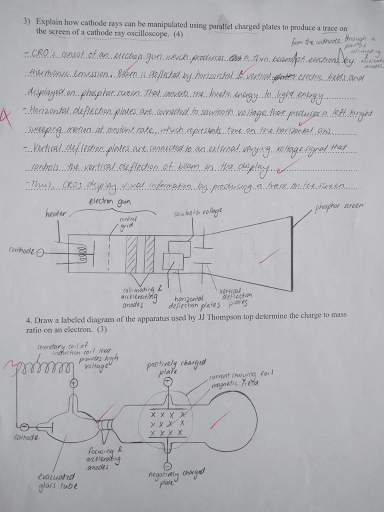 3) Explain how cathode rays can be manipulated using parallel charged plates to produce a trace on
the screen of a cathode ray oscilloscope. (4)
from the cathode, through a
- CRO's consist of an electron gun which produces a thin beam of electrons by
thermionic emission. Beam is deflected by horizontal & vertical electric fields and
displayed on phosphor screen that converts the kinetic energy to light energy
- Horizontal deflection plates are connected to sawtooth voltage that produces a left to right
sweeping motion at constant rate, which represents time on the horizontal axis.
- Vertical deflection plates are connected to an external varying voltage signal that
controls the vertical deflection of beam on the display.
- Thus, CROs display visual information by producing a trace on the screen
electron gun
heater
control
grid
sawtooth voltage
phosphor screen
cathode
collimating &
accelerating
anodes
horizontal
deflection plates
vertical
deflection
plates
4. Draw a labeled diagram of the apparatus used by JJ Thompson top determine the charge to mass
ratio on an electron. (3)
secondary coil of
induction coil that
provides high
voltage
positively charged
plate
current carrying coil
magnetic field
cathode
focusing &
accelerating
anodes
evacuated
glass tube
negatively charged
plate